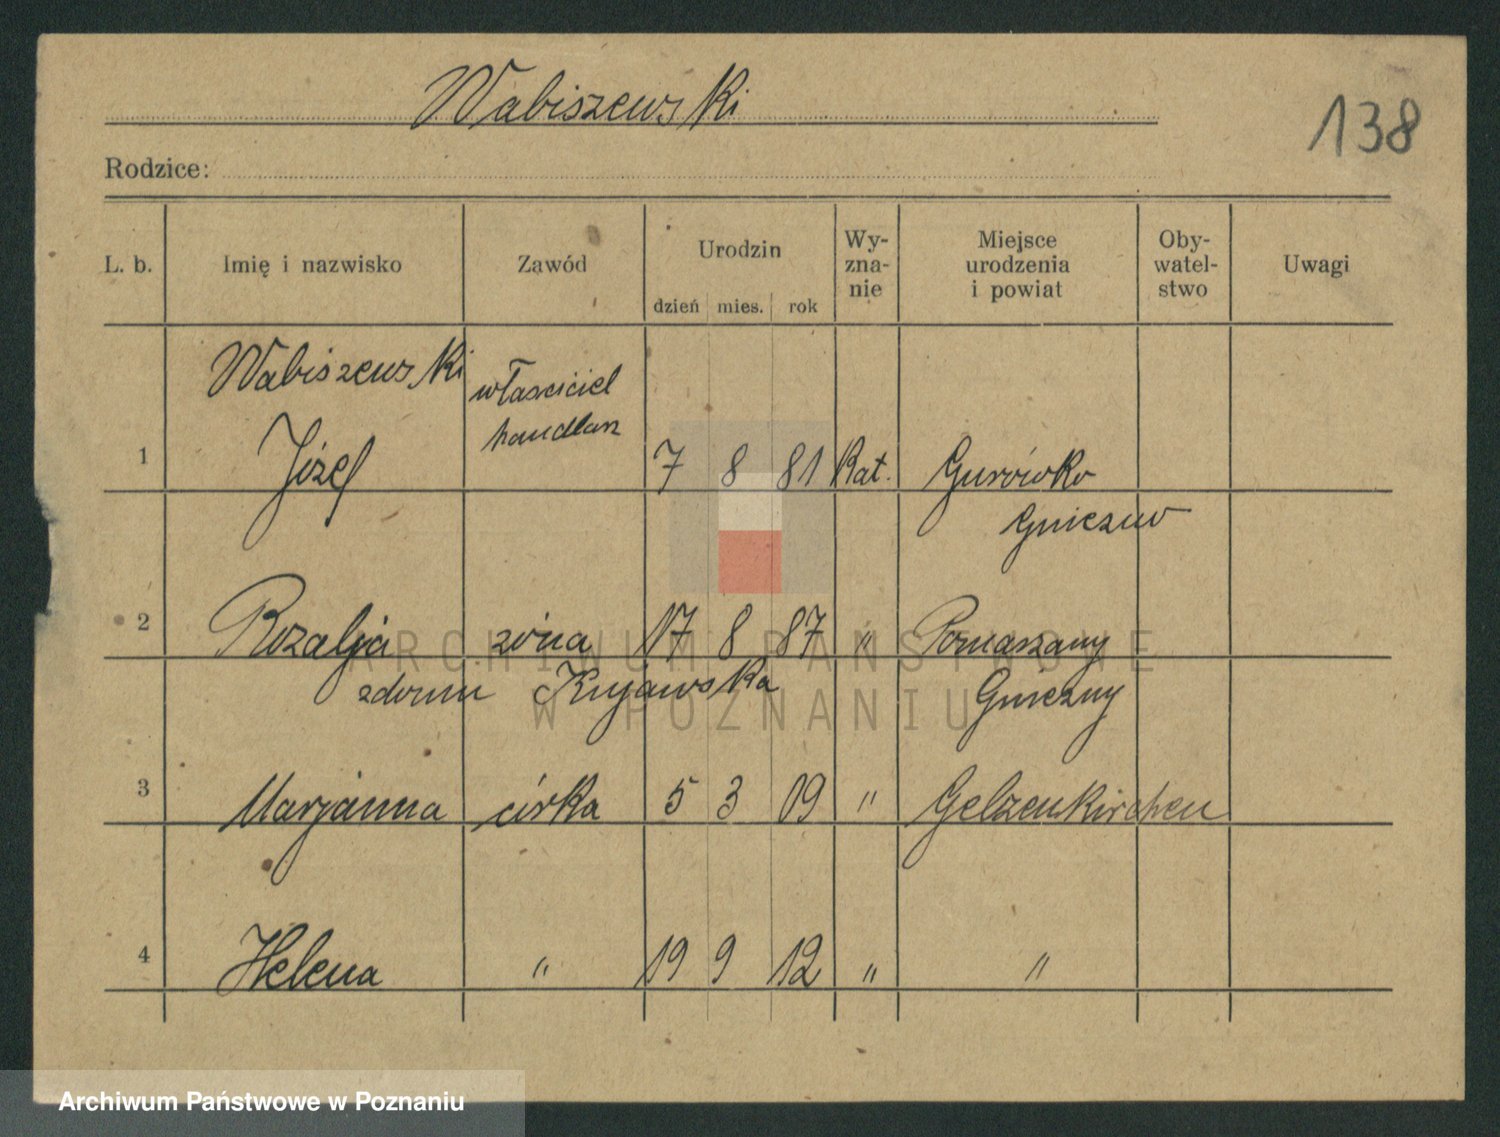 Wabiszewski
138
Rodzice:
L. b. Imię i nazwisko Zawód Urodzin dzień mies. rok Wy-zna-nie Miejsce urodzenia i powiat Oby-watel-stwo Uwagi
Wabiszewski właściciel
handlarz
1 Józef 7 8 81 Kat. Gurówko
Gniezno
2 Rozalja żona 17 8 87 "
zdomu Kujawska Gniezny
3 Marjanna córka 5 3 09 " Gelzenkirchen
4 Helena " 19 9 12 " "
ARCHIWUM PAŃSTWOWE
W POZNANIU
Archiwum Państwowe w Poznaniu